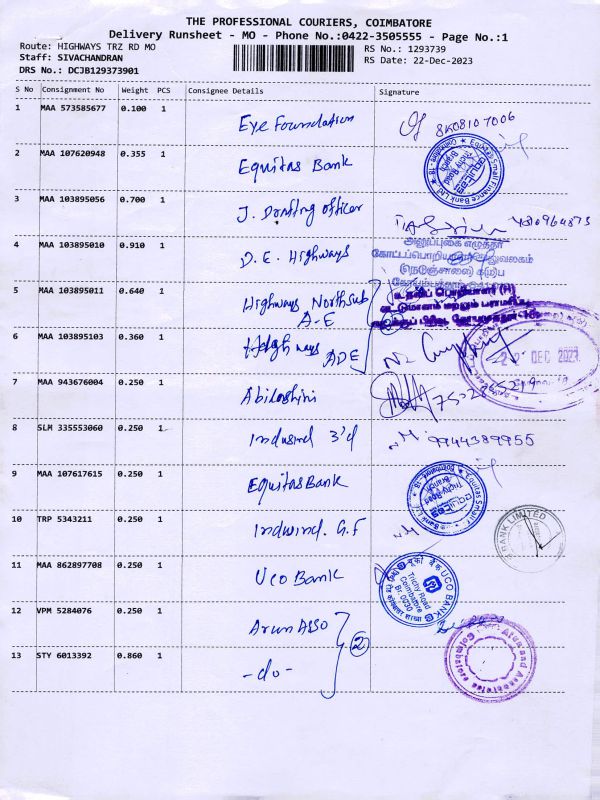 THE PROFESSIONAL COURIERS, COIMBATORE
Delivery Runsheet - MO - Phone No.:0422-3505555 - Page No.:1
Route: HIGHWAYS TRZ RD MO
RS No.: 1293739
Staff: SIVACHANDRAN
RS Date: 22-Dec-2023
DRS No.: DCJB129373901
S No Consignment No Weight PCS Consignee Details Signature
1 MAA 573585677 0.100 1 Eye Foundation 8K08107006
2 MAA 107620948 0.355 1 Equitas Bank
Equitas Small Finance Bank Ltd
equitas
Trichy Road
Branch
Coimbatore - 18
3 MAA 103895056 0.700 1 J. Drafting officer
4 MAA 103895010 0.910 1 D.E. Highways
அலுப்புகை எழுத்தர்
(நெடுஞ்சாலை)
5 MAA 103895011 0.640 1 Highways North sub
A-E
6 MAA 103895103 0.360 1 Highways ADE
DEC 2023
7 MAA 943676004 0.250 1 Abiloshini
8 SLM 335553060 0.250 1 Indusind 3'd 9944389955
9 MAA 107617615 0.250 1 Equitas Bank
equitas
Trichy Road
Branch
10 TRP 5343211 0.250 1 Indusind. G.F
BANK LIMITED
11 MAA 862897708 0.250 1 UCO Bank
यूको बैंक UCO BANK
Trichy Road
Coimbatore
Br. 0230
12 VPM 5284076 0.250 1 Arun Asso
2
13 STY 6013392 0.860 1 -do-
Associates
Coimbatore